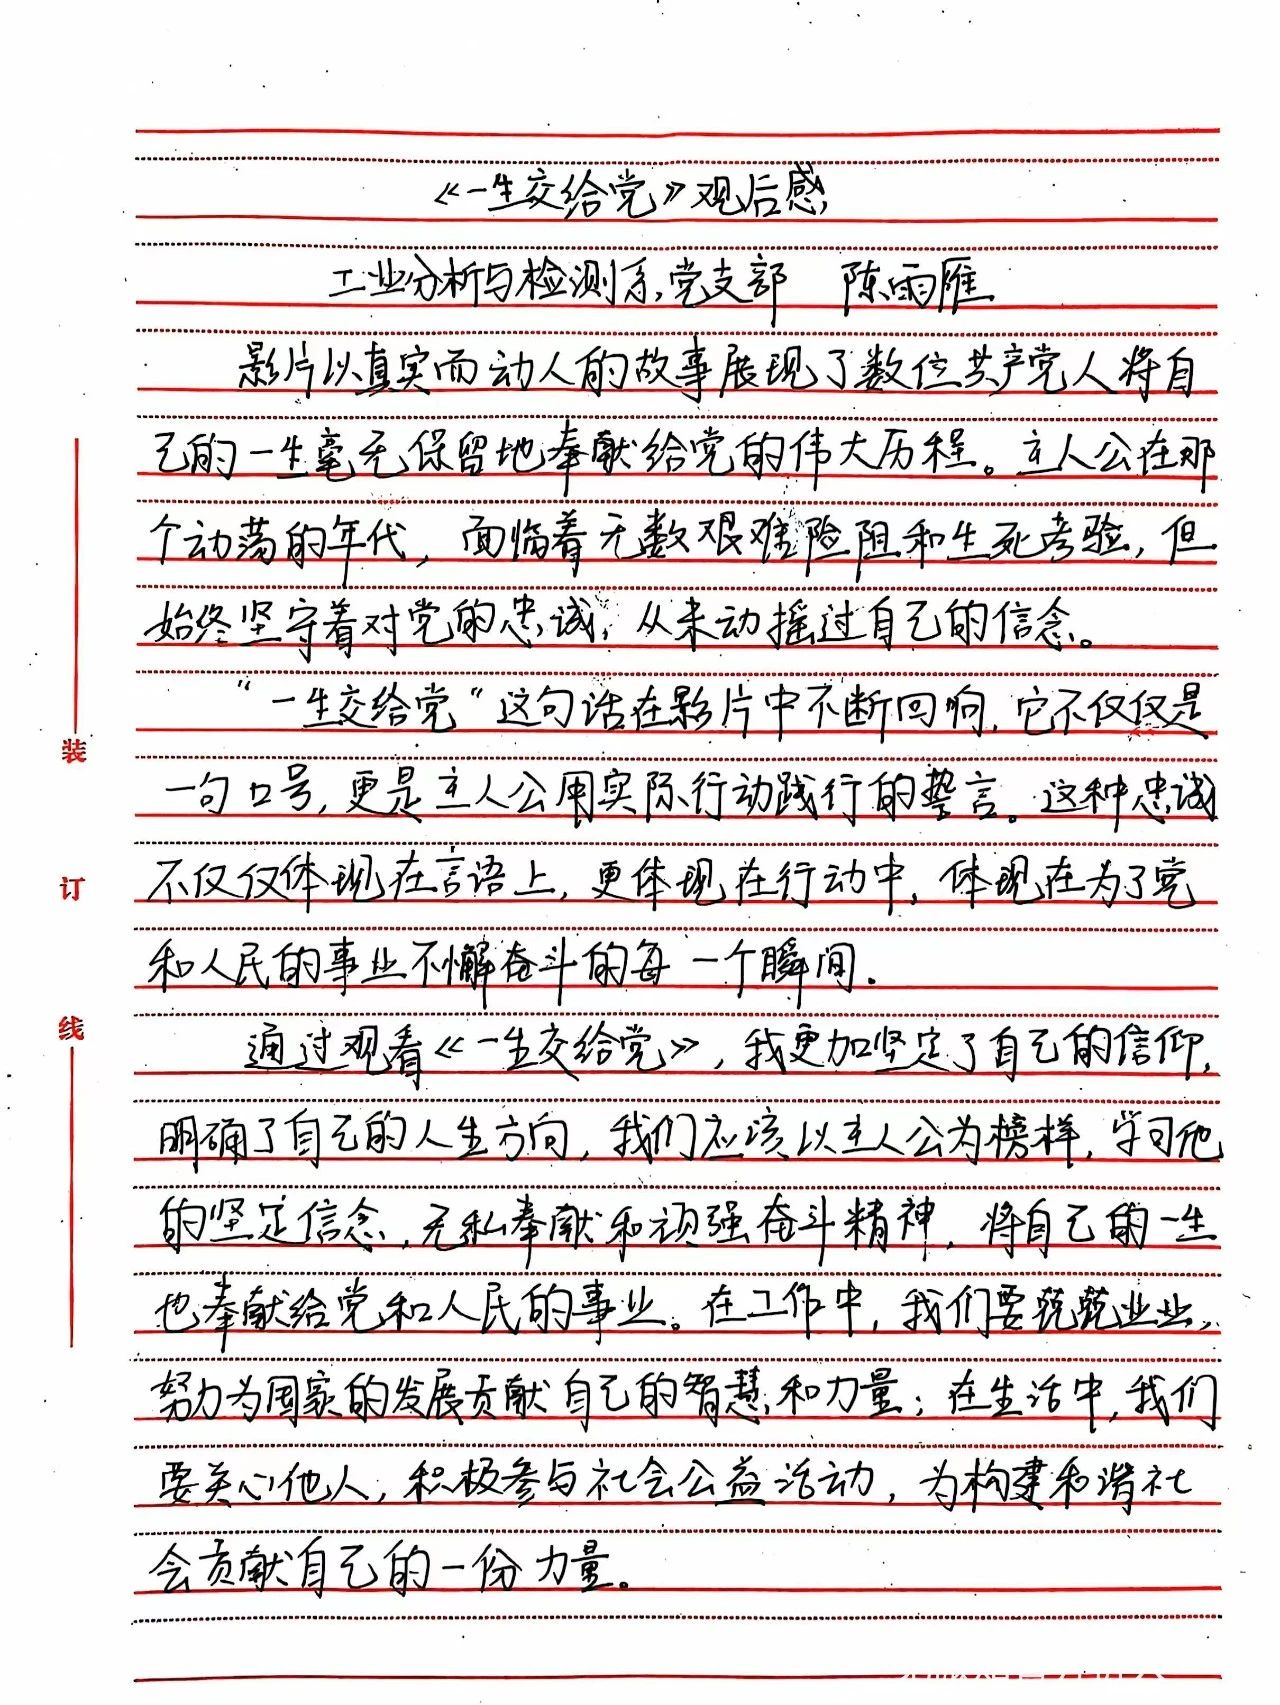 《一生交给党》观后感
工业分析与检测系党支部 陈雨雁
影片以真实而动人的故事展现了数位共产党人将自
己的一生毫无保留地奉献给党的伟大历程。主人公在那
个动荡的年代，面临着无数艰难险阻和生死考验，但
始终坚守着对党的忠诚，从未动摇过自己的信念。
"一生交给党"这句话在影片中不断回响，它不仅仅是
一句口号，更是主人公用实际行动践行的誓言。这种忠诚
不仅仅体现在言语上，更体现在行动中，体现在为了党
和人民的事业不懈奋斗的每一个瞬间。
通过观看《一生交给党》，我更加坚定了自己的信仰，
明确了自己的人生方向，我们应该以主人公为榜样，学习他
的坚定信念，无私奉献和顽强奋斗精神，将自己的一生
也奉献给党和人民的事业。在工作中，我们要兢兢业业，
努力为国家的发展贡献自己的智慧和力量；在生活中，我们
要关心他人，积极参与社会公益活动，为构建和谐社
会贡献自己的一份力量。
装
订
线